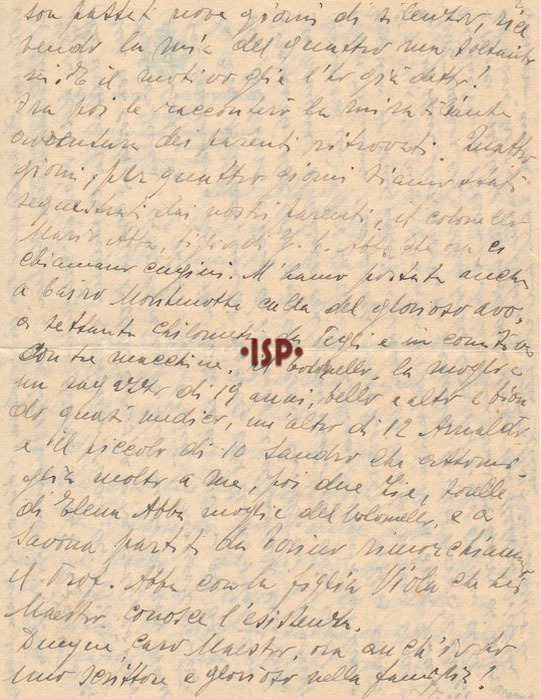 son passati nove giorni di silenzio, rice
vendo la mia del quattro ma soltanto
sì. E il motivo glie l'ho già detto!
Ora poi le racconterò la mirabilante
avventura dei parenti ritrovati. Quattro
giorni, per quattro giorni siamo stati
sequestrati dai nostri parenti, il colonello
Mario Abba, figlio di G. C. Abba che ora ci
chiamano cugini. M'hanno portata anche
a Cairo Montenotte culla del glorioso avo,
a settanta chilometri da Pegli e in comitiva
con tre macchine. Il colonello, la moglie
un ragazzo di 19 anni, bello e alto e bion
do quasi medico, un'altro di 12 Arnaldo
e il piccolo di 10 Sandro che assomi
glia molto a me, poi due zie, sorelle
di Elena Abba moglie del colonello, e a
Savona partiti da Torino rimorchiamo
il Prof. Abba con la figlia Viola che Lei
Maestro, conosce l'esistenza.
Dunque caro Maestro, ora anch'io ho
uno scrittore e glorioso nella famiglia!
•ISP•